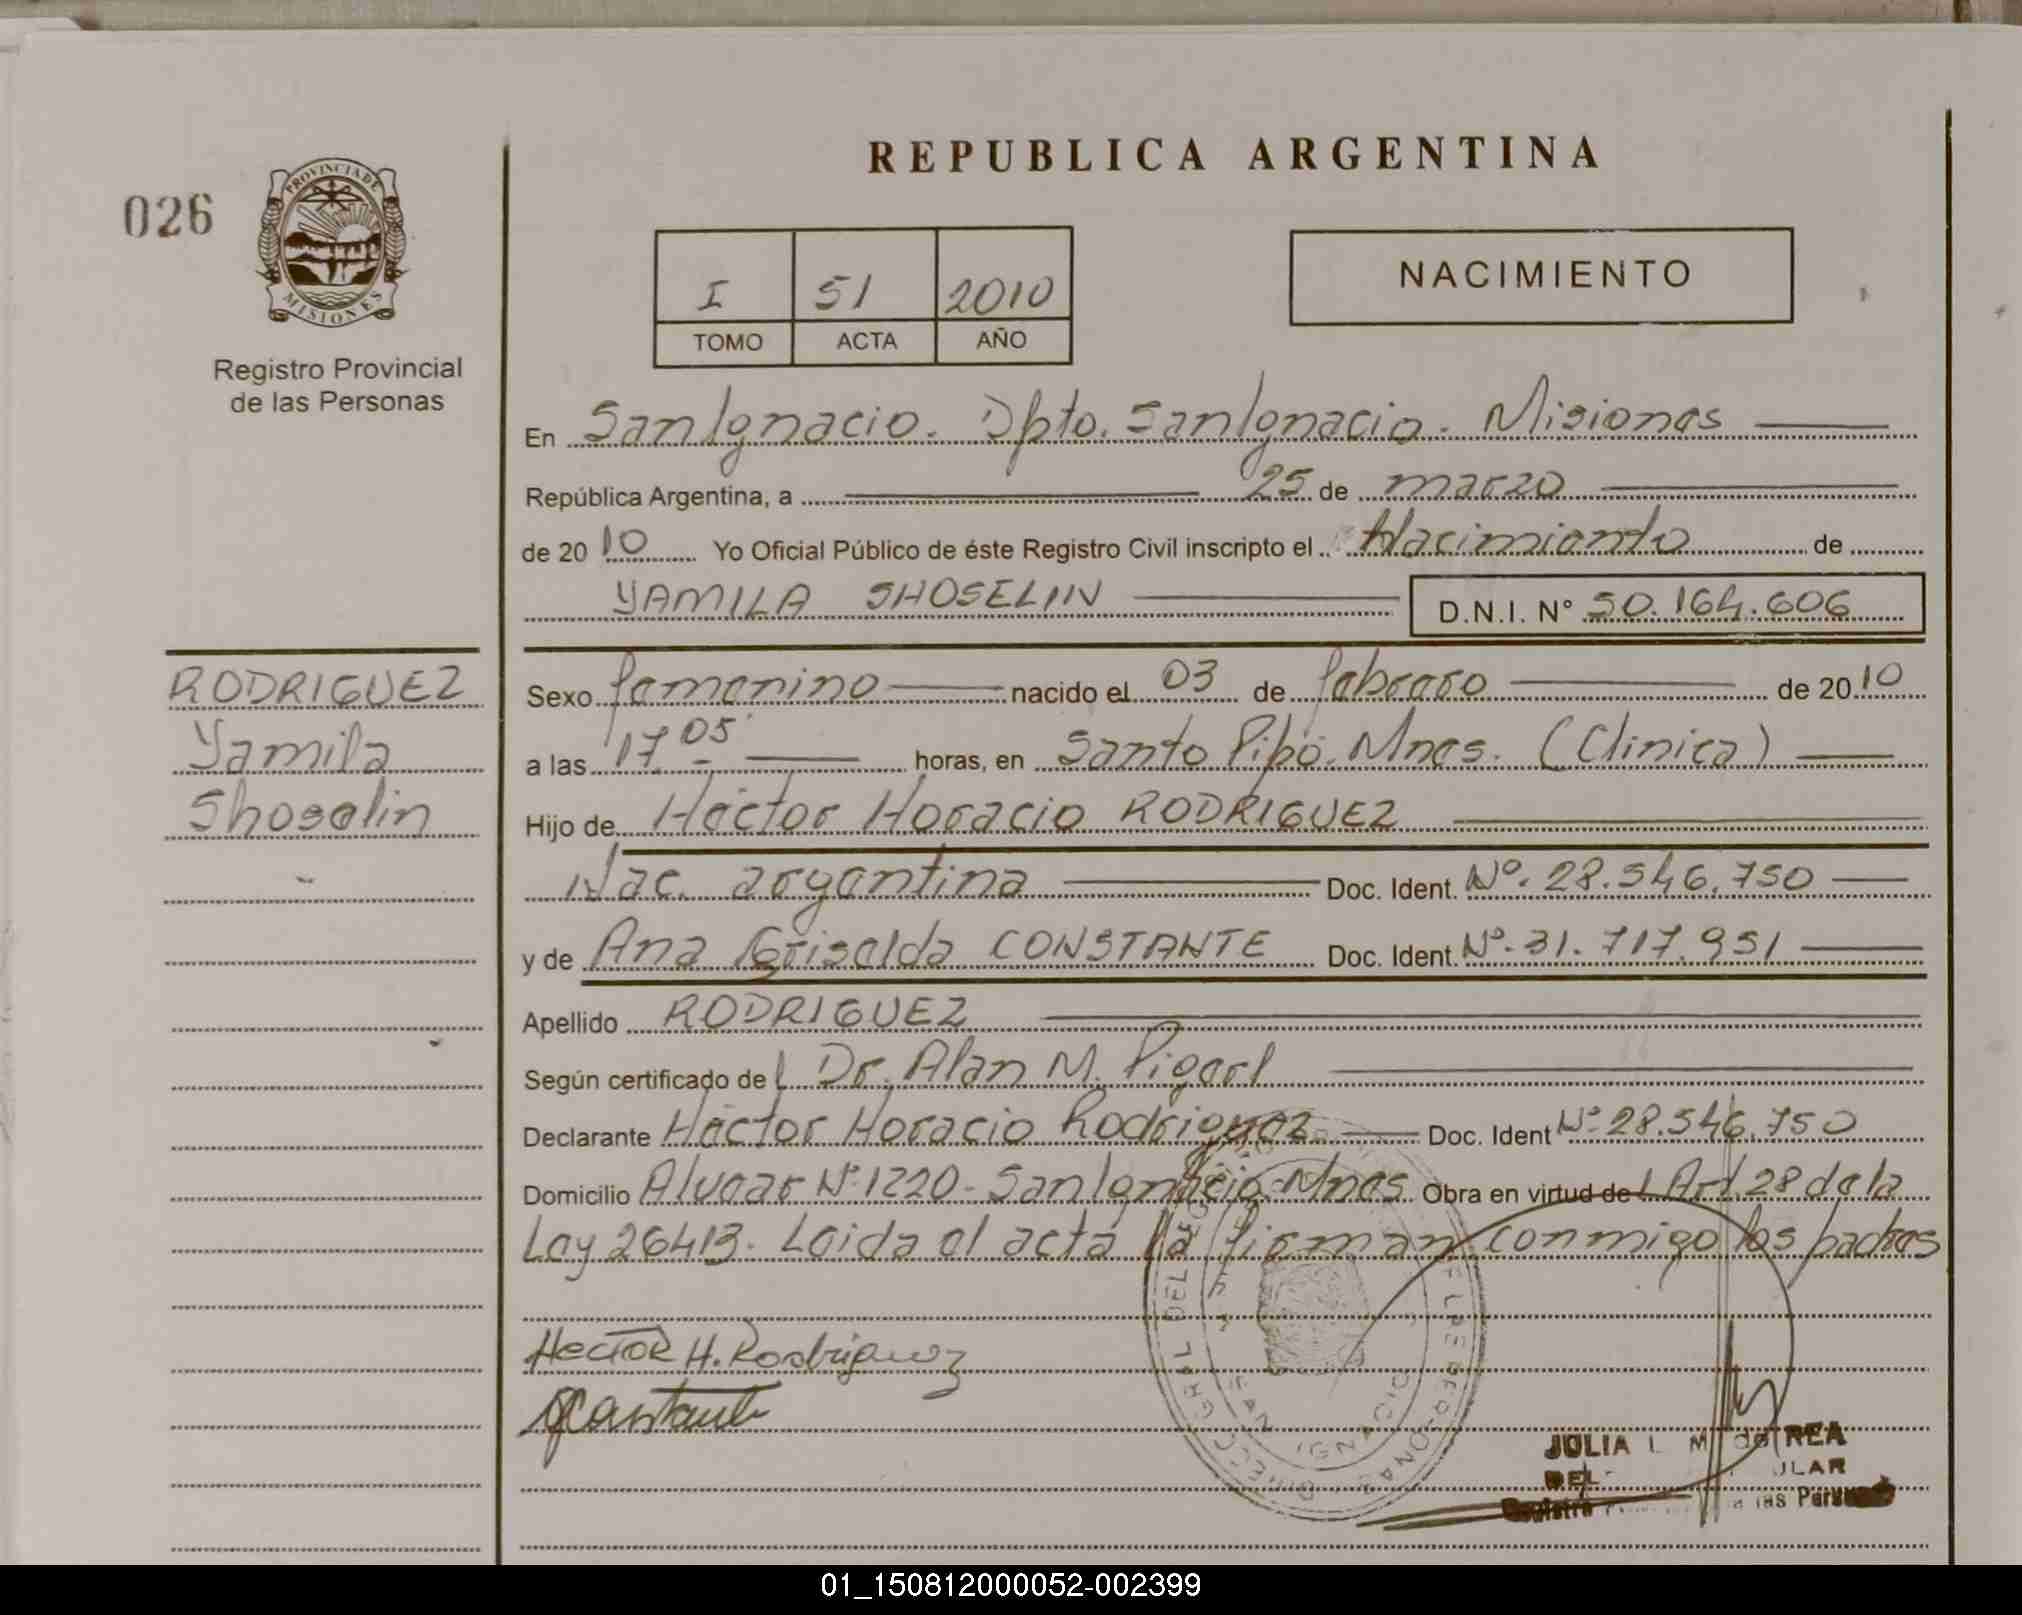 REPUBLICA ARGENTINA
026
PROVINCIA DE
MISIONES
Registro Provincial
de las Personas
I 51 2010
TOMO ACTA AÑO
NACIMIENTO
En San Ignacio. Dpto. San Ignacio. Misiones
República Argentina, a 25 de marzo
de 2010 Yo Oficial Público de éste Registro Civil inscripto el Nacimiento de
YAMILA SHOSELIN D.N.I. N° 50.164.606
RODRIGUEZ
Yamila
Shoselin
Sexo femenino nacido el 03 de febrero de 2010
a las 17.05 horas, en Santo Pipó. Mnes. (Clinica)
Hijo de Héctor Horacio RODRIGUEZ
Nac. argentina Doc. Ident. Nº. 28.546.750
y de Ana Griselda CONSTANTE Doc. Ident. Nº. 31.717.951
Apellido RODRIGUEZ
Según certificado del Dr. Alan M.
Declarante Héctor Horacio Rodriguez Doc. Ident Nº 28.546.750
Domicilio Alvear Nº 1220 - San Ignacio - Mnes Obra en virtud del Art. 28 de la
Ley 26413. Leida el acta la firman conmigo los padres
HECTOR H. Rodriguez
JULIA I. M de REA
ULAR
Registro las Personas
01_150812000052-002399